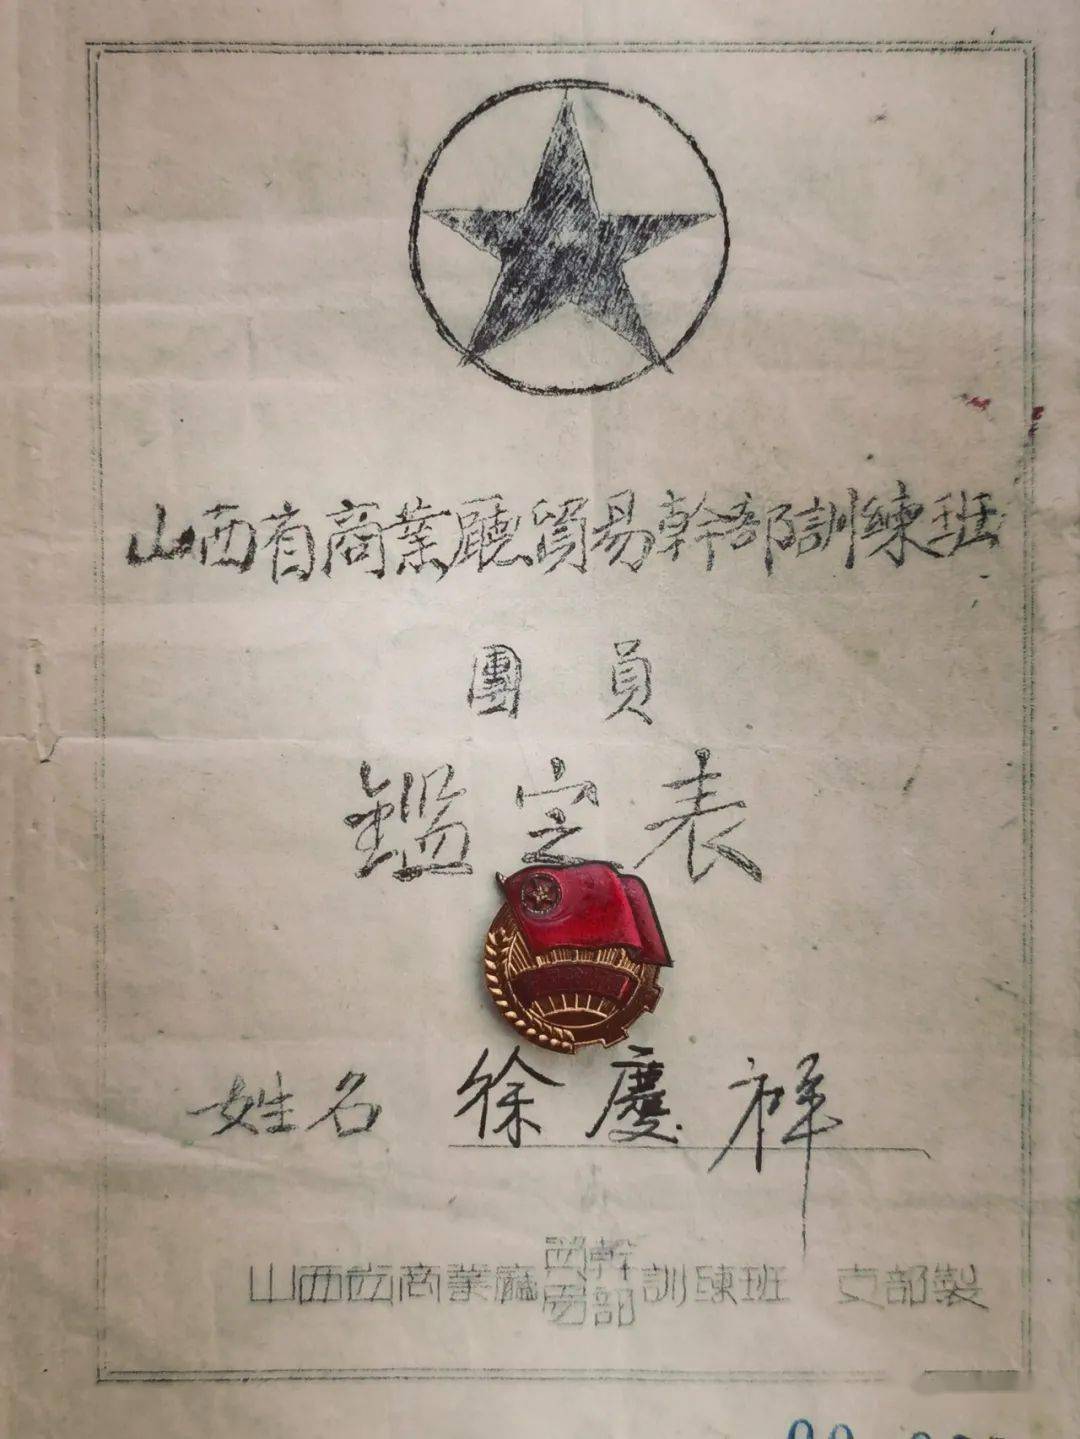 山西省商業廳貿易幹部訓練班
團員
鑑定表
姓名 徐慶祥
山西省商業廳貿易幹部訓練班 支部製